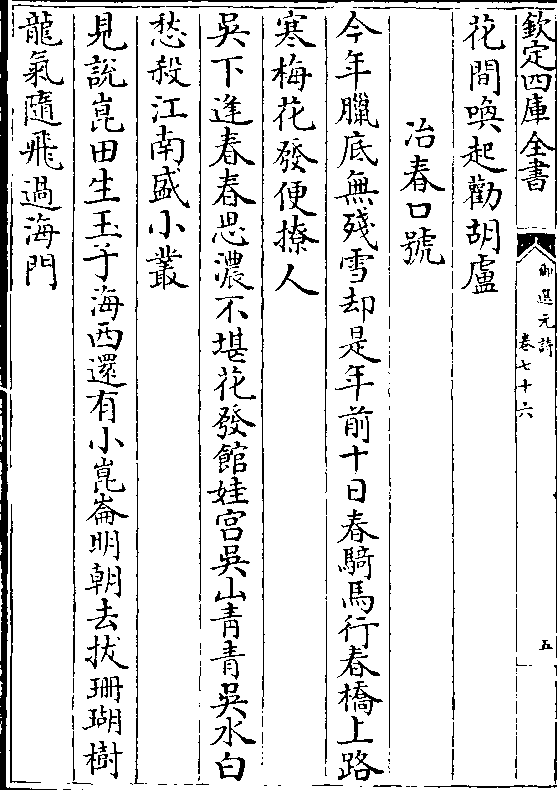 欽定四庫全書
御選元詩
卷七十六
五
花間喚起勸胡盧
冶春口號
今年臘底無殘雪却是年前十日春騎馬行春橋上路
寒梅花發便撩人
吳下逢春春思濃不堪花發館娃宫吳山青青吳水白
愁殺江南盛小叢
見說崑田生玉子海西還有小崑崙明朝去拔珊瑚樹
龍氣隨飛過海門